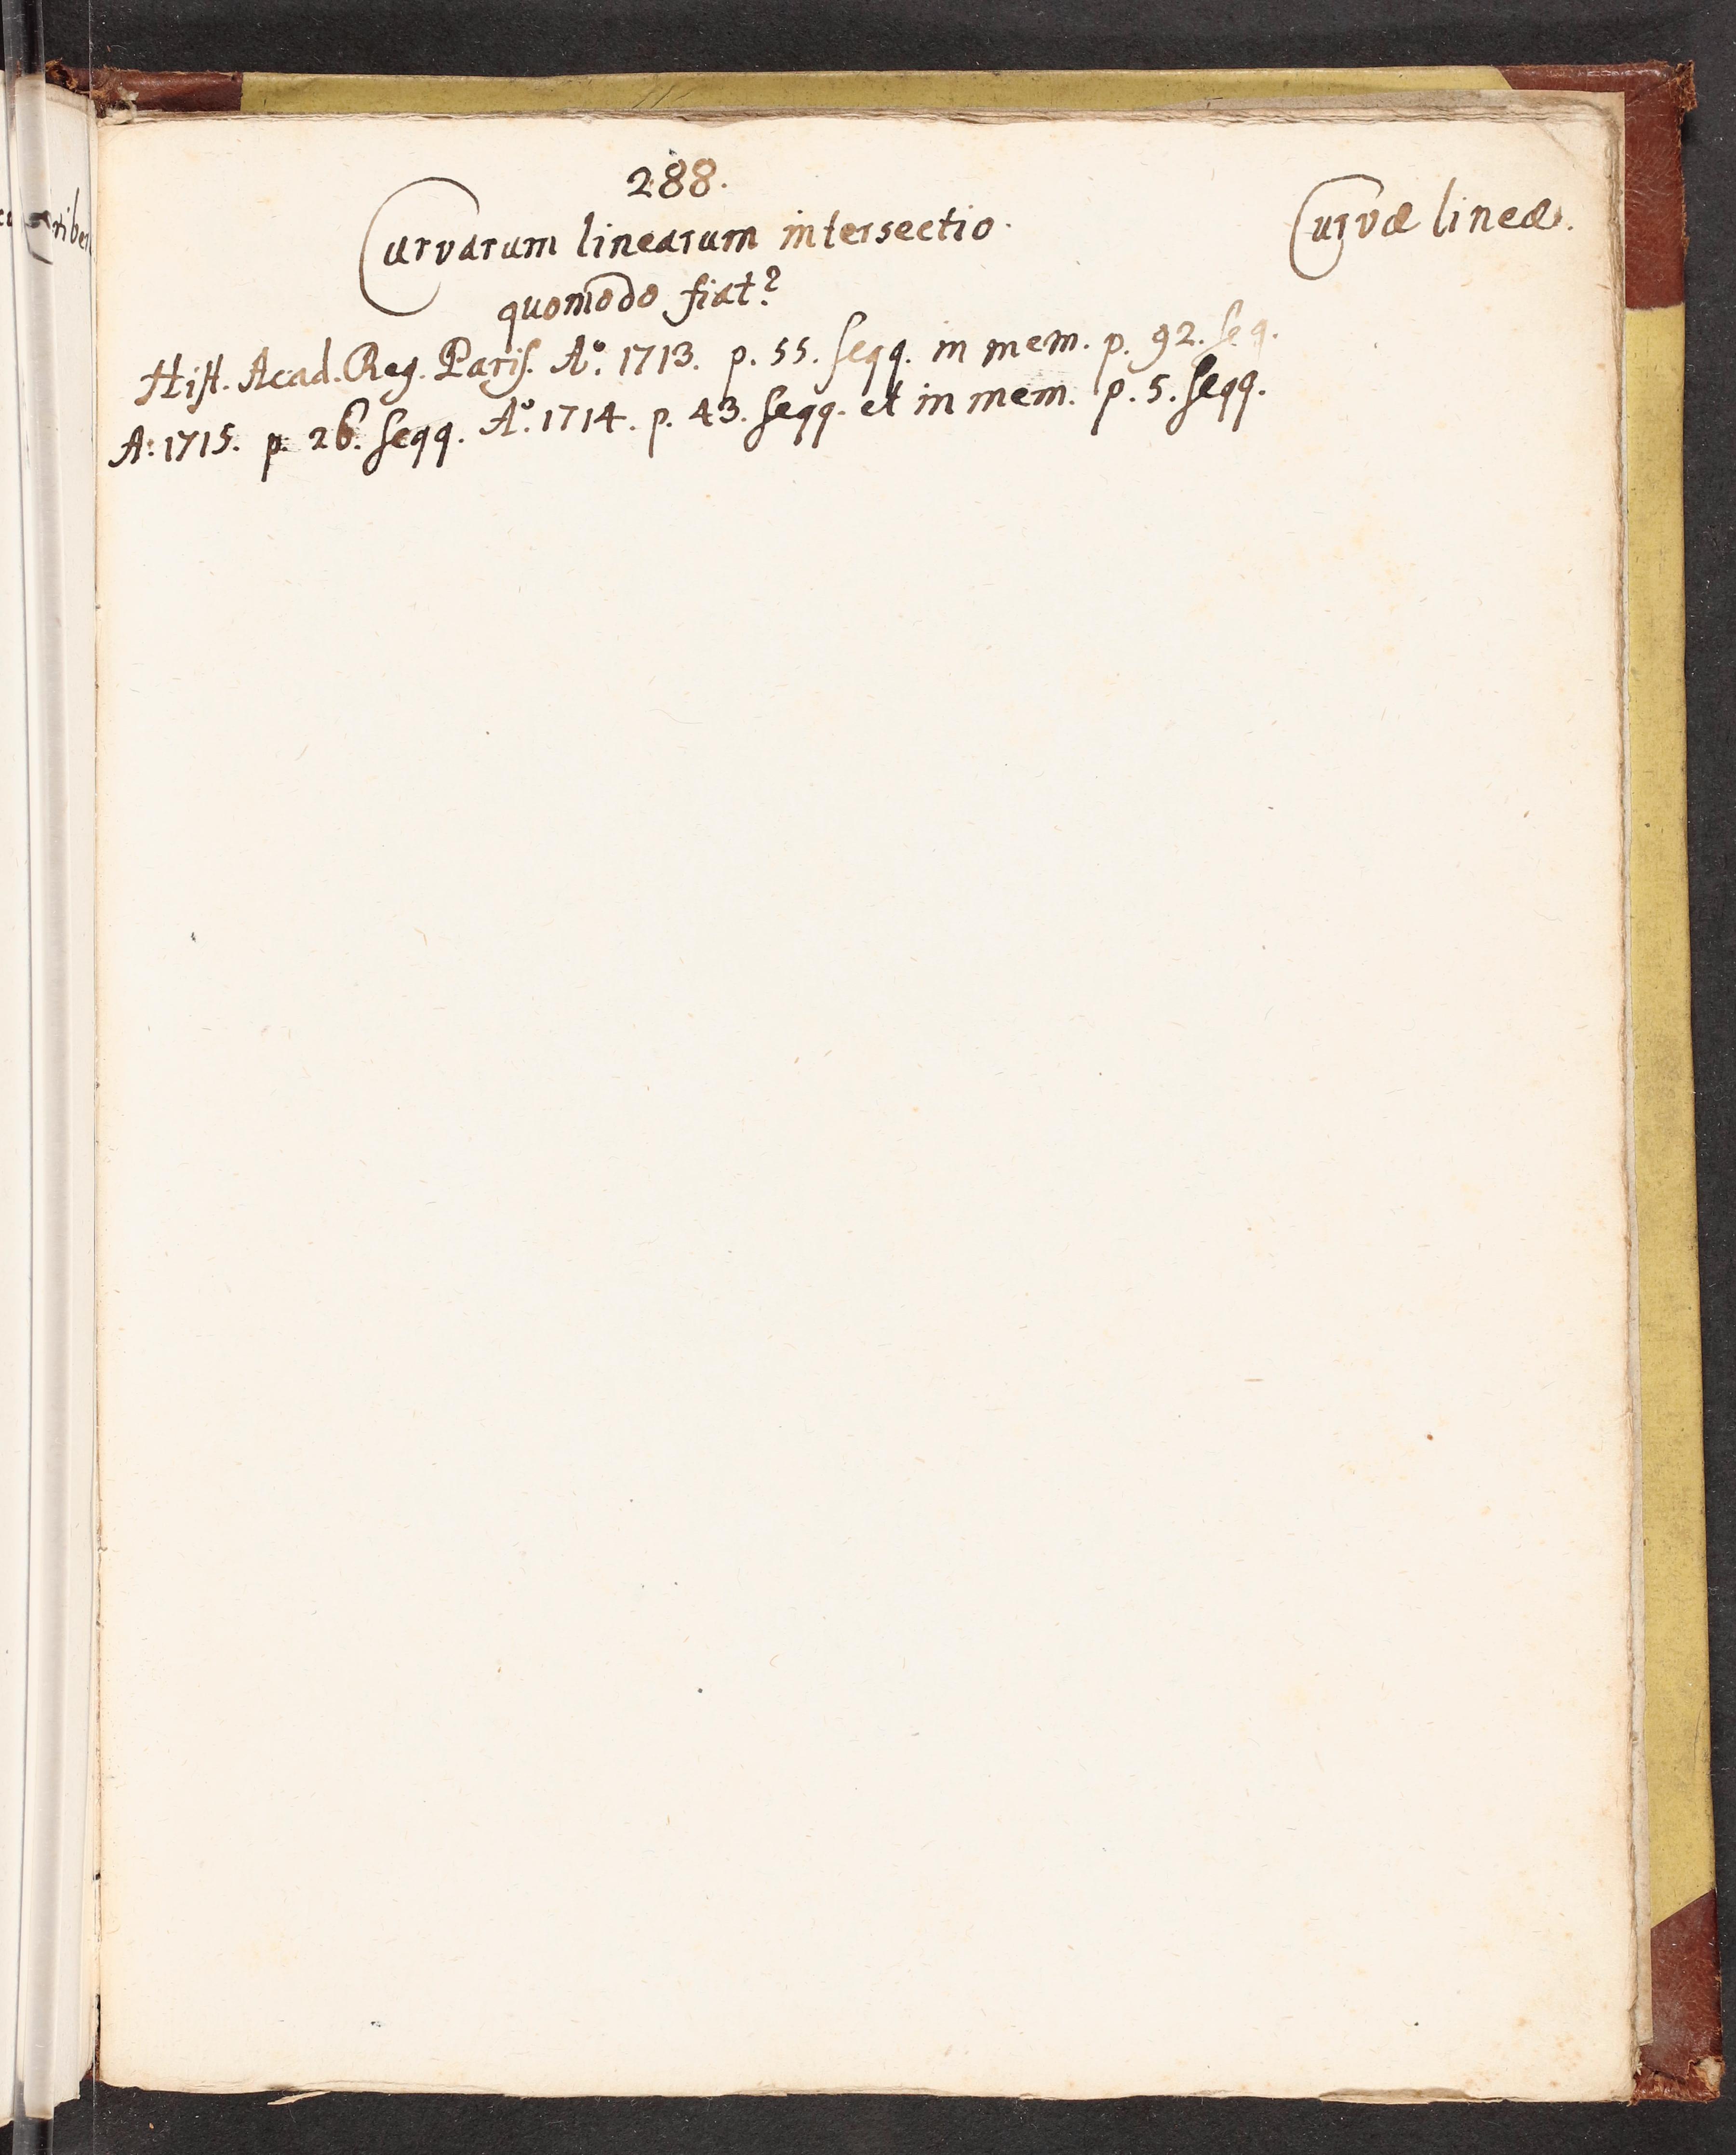 288.
Curvarum linearum intersectio.
Curvæ lineæ.
quomodo fiat?
Hiſt. Acad. Reg. Pariſ. Aº. 1713. p. 55. ſeqq. in mem. p. 92. ſeq.
A: 1715. p. 26. ſeqq. Aº. 1714. p. 43. ſeqq. et in mem. p. 5. ſeqq.